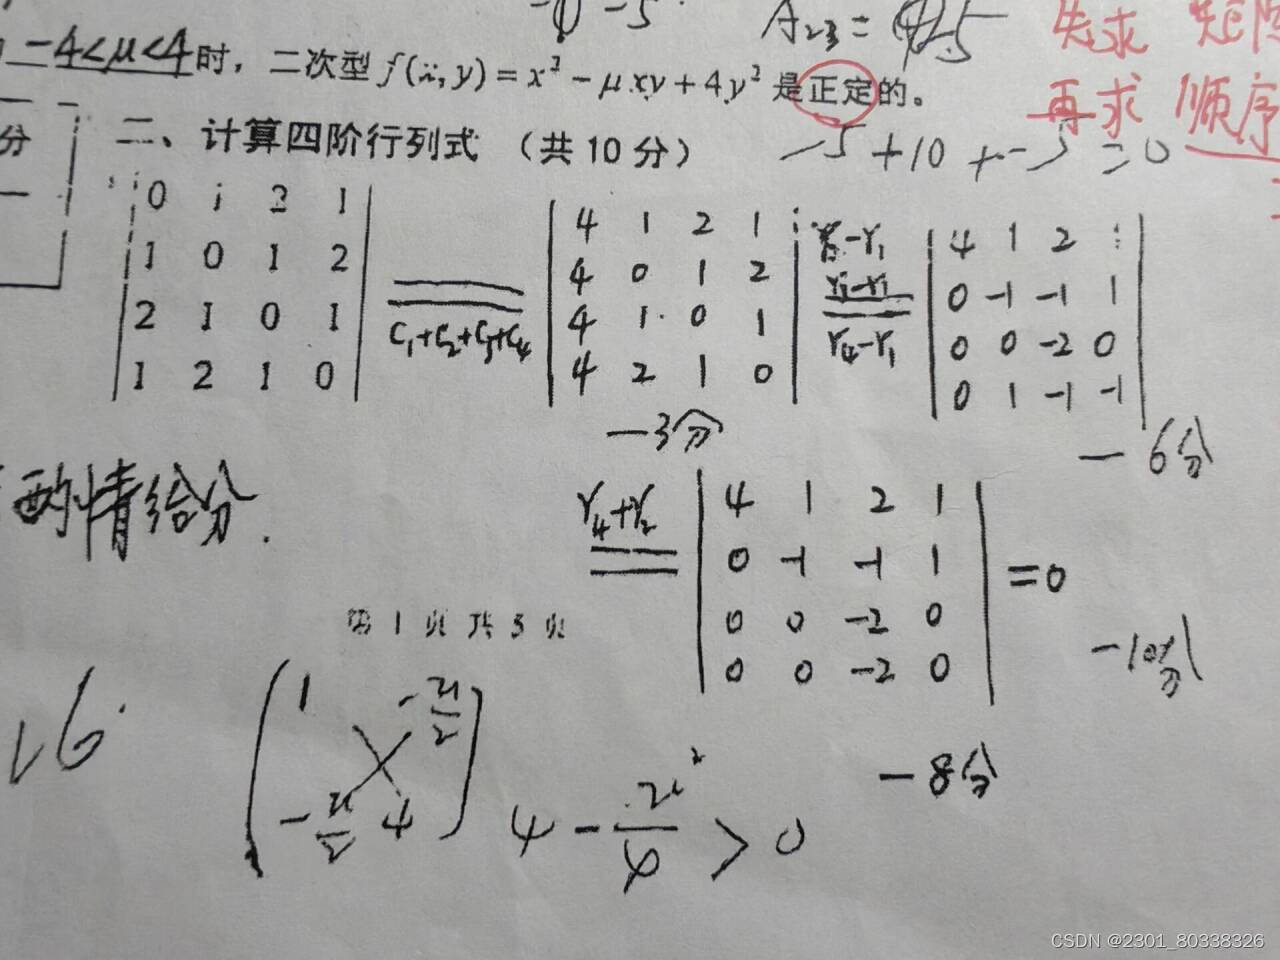 -0 -5
A₂₃ = 45
先求
-4<μ<4 时，二次型 f(x, y) = x² - μxy + 4y² 是正定的。
再求 顺序
分
二、计算四阶行列式 （共 10 分）
-5 +10 + -5 = 0
0 1 2 1
1 0 1 2
2 1 0 1
1 2 1 0
C₁+C₂+C₃+C₄
4 1 2 1
4 0 1 2
4 1 0 1
4 2 1 0
-3分
r₂-r₁
r₃-r₁
r₄-r₁
4 1 2 1
0 -1 -1 1
0 0 -2 0
0 1 -1 -1
-6分
酌情给分.
r₄+r₂
4 1 2 1
0 -1 -1 1
0 0 -2 0
0 0 -2 0
=0
-10分
-8分
第 1 页 共 3 页
16.
1 -u/2
-u/2 4
4 - u²/4 > 0
CSDN @2301_80338326